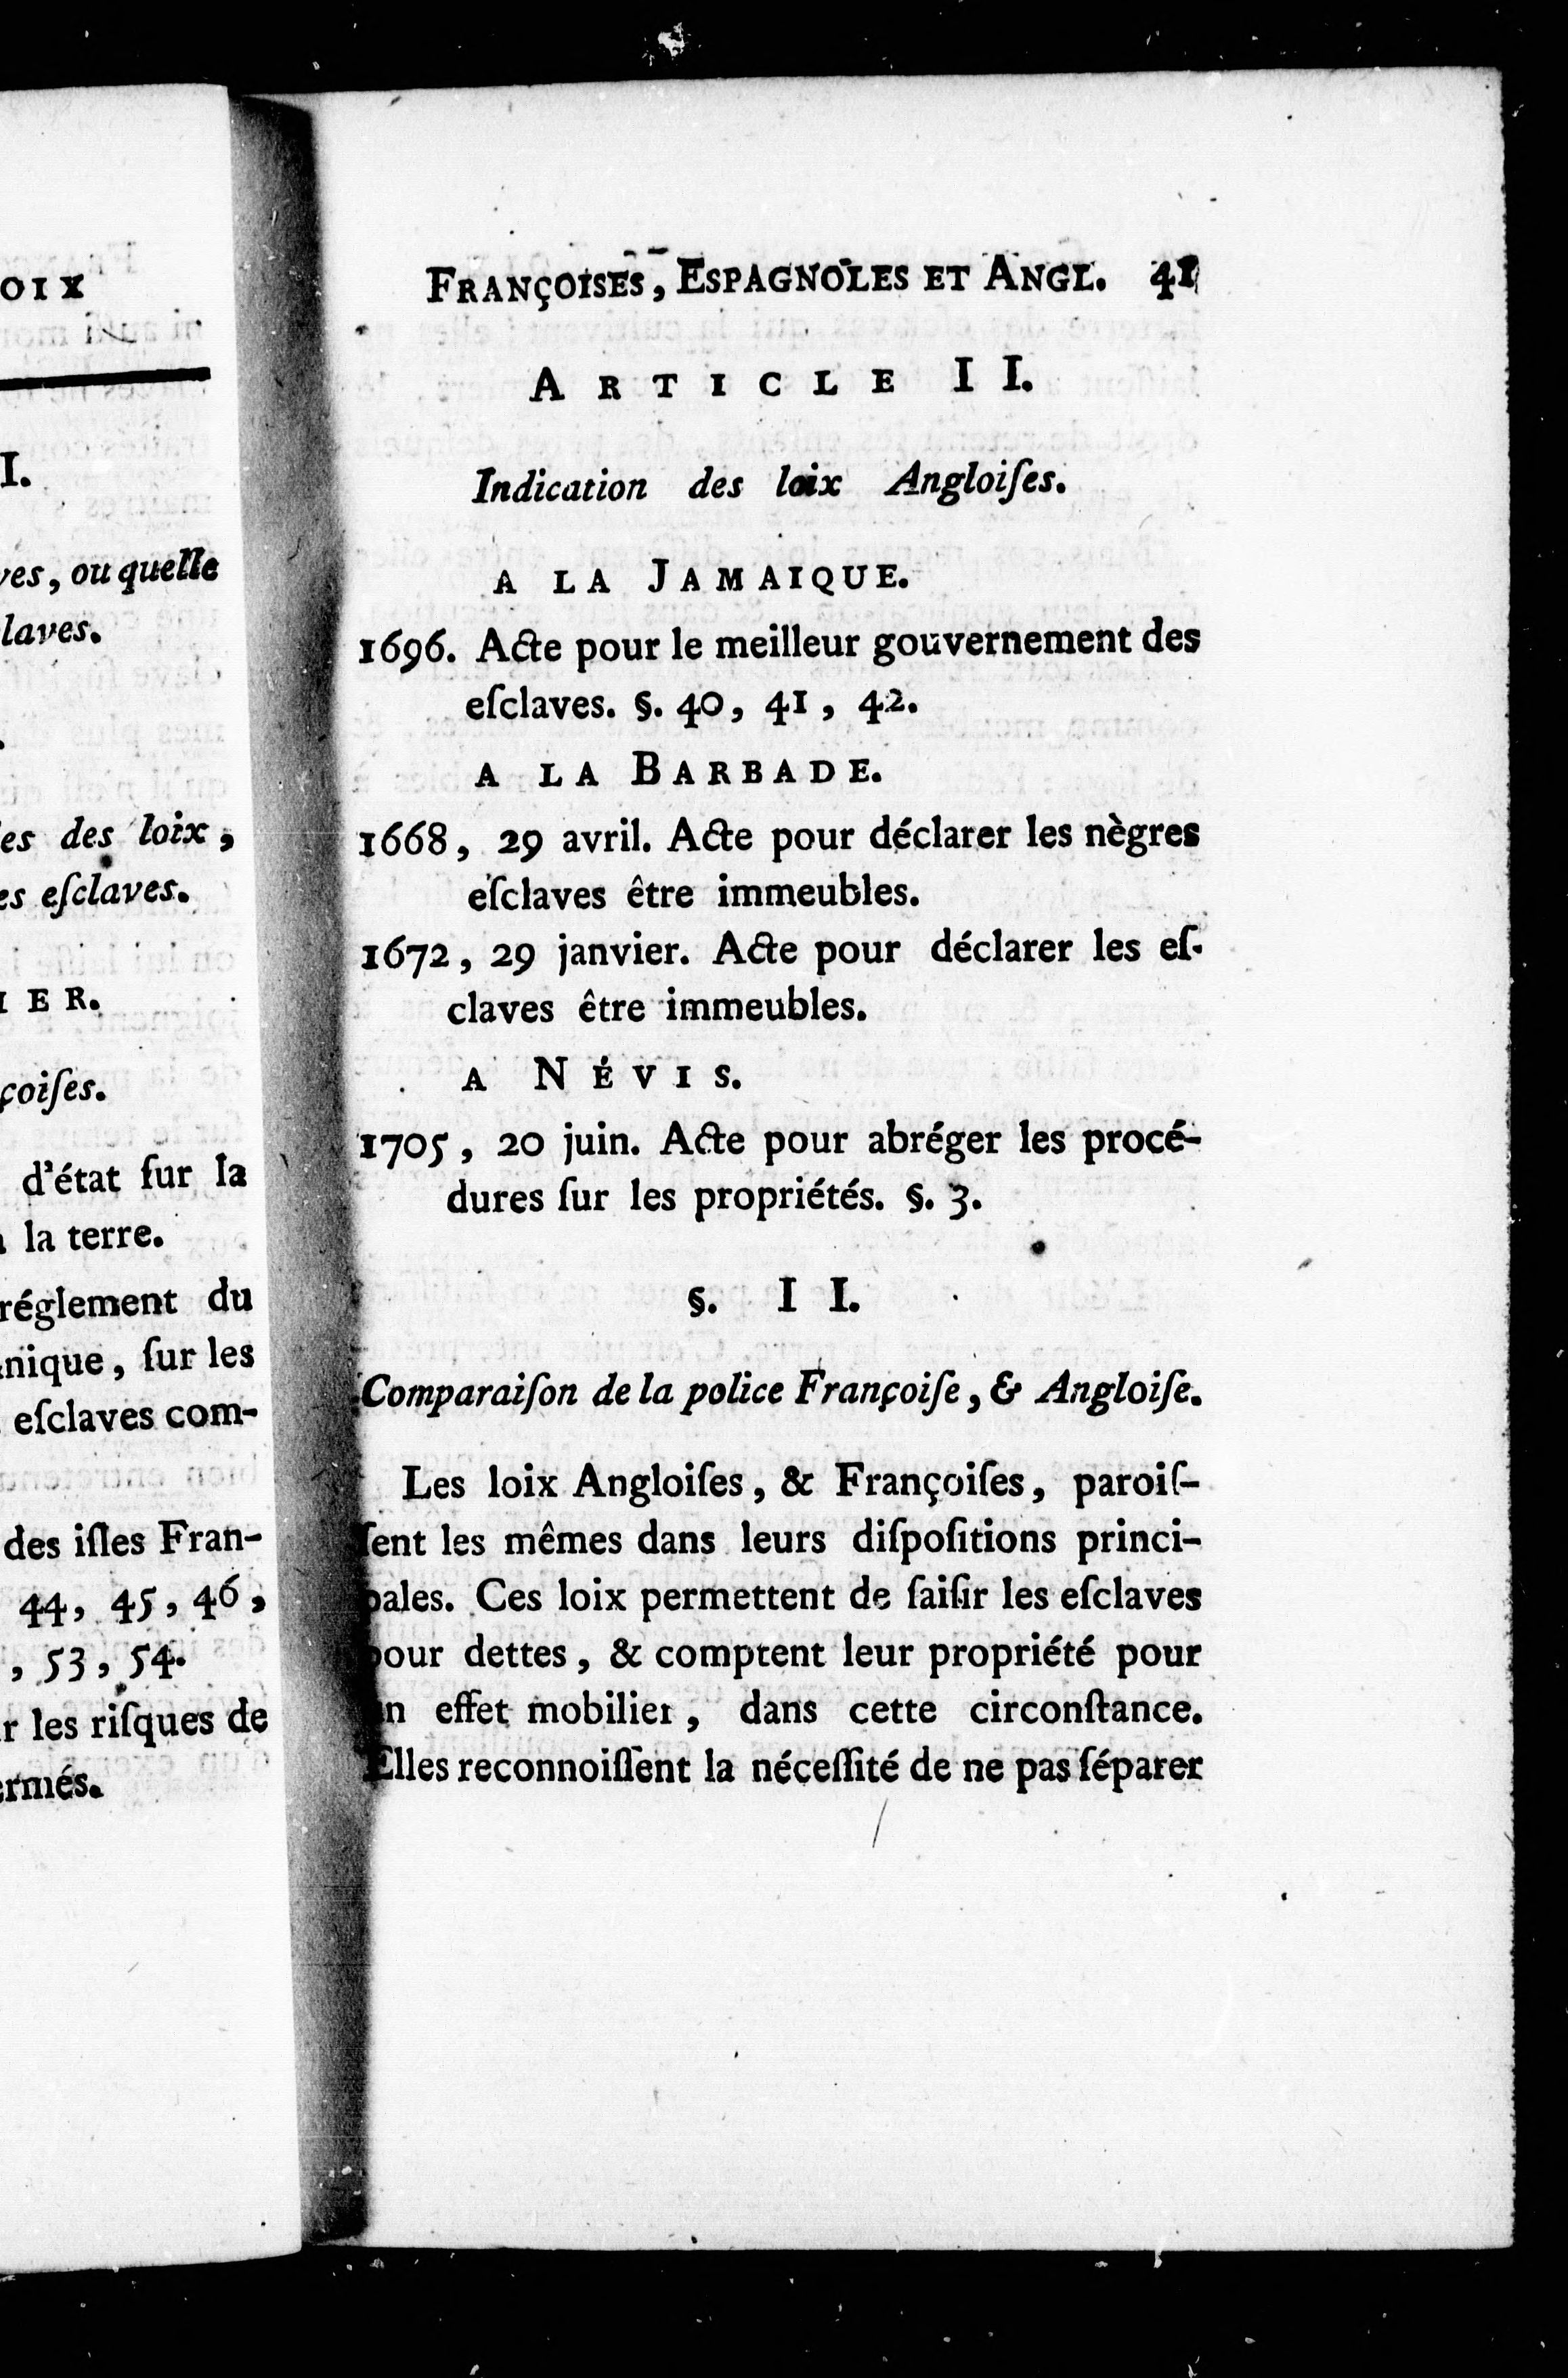 OIX
I.
ves, ou quelle
laves.
es des loix,
es eſclaves.
I E R.
çoiſes.
d'état ſur la
la terre.
réglement du
nique, ſur les
eſclaves com-
des iſles Fran-
44, 45, 46,
, 53, 54.
r les riſques de
ermés.
FRANÇOISES, ESPAGNOLES ET ANGL. 41
ARTICLE II.
Indication des loix Angloiſes.
A LA JAMAIQUE.
1696. Acte pour le meilleur gouvernement des
eſclaves. §. 40, 41, 42.
A LA BARBADE.
1668, 29 avril. Acte pour déclarer les nègres
eſclaves être immeubles.
1672, 29 janvier. Acte pour déclarer les eſ-
claves être immeubles.
A NÉVIS.
1705, 20 juin. Acte pour abréger les procé-
dures ſur les propriétés. §. 3.
§. II.
Comparaiſon de la police Françoiſe, & Angloiſe.
Les loix Angloiſes, & Françoiſes, paroiſ-
ſent les mêmes dans leurs diſpoſitions princi-
pales. Ces loix permettent de ſaiſir les eſclaves
pour dettes, & comptent leur propriété pour
un effet mobilier, dans cette circonſtance.
Elles reconnoiſſent la néceſſité de ne pas ſéparer